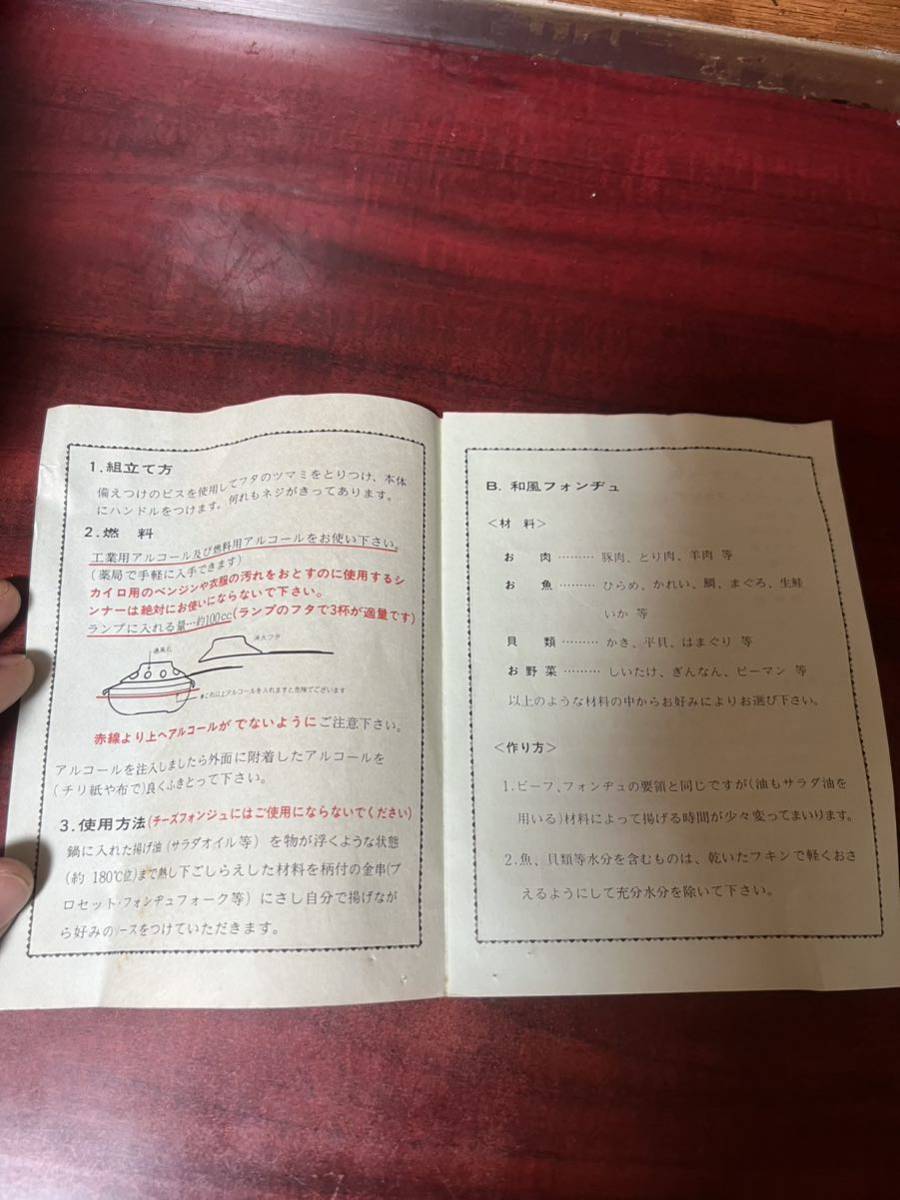 1.組立て方
備えつけのビスを使用してフタのツマミをとりつけ、本体
にハンドルをつけます。何れもネジがきってあります。
2.燃 料
工業用アルコール及び燃料用アルコールをお使い下さい。
(薬局で手軽に入手できます)
カイロ用のベンジンや衣服の汚れをおとすのに使用するシ
ンナーは絶対にお使いにならないで下さい。
ランプに入れる量…約100cc(ランプのフタで3杯が適量です)
通風孔
消火フタ
これ以上アルコールを入れますと危険でございます
赤線より上へアルコールがでないようにご注意下さい。
アルコールを注入しましたら外面に附着したアルコールを
(チリ紙や布で)良くふきとって下さい。
3.使用方法(チーズフォンジュにはご使用にならないでください)
鍋に入れた揚げ油(サラダオイル等)を物が浮くような状態
(約180℃位)まで熱し下ごしらえした材料を柄付の金串(ブ
ロセット・フォンヂュフォーク等)にさし自分で揚げなが
ら好みのソースをつけていただきます。
B. 和風フォンヂュ
<材 料>
お 肉………豚肉、とり肉、羊肉 等
お 魚………ひらめ、かれい、鯛、まぐろ、生鮭
いか 等
貝 類………かき、平貝、はまぐり 等
お野菜………しいたけ、ぎんなん、ピーマン 等
以上のような材料の中からお好みによりお選び下さい。
<作り方>
1.ビーフ、フォンヂュの要領と同じですが(油もサラダ油を
用いる)材料によって揚げる時間が少々変ってまいります。
2.魚、貝類等水分を含むものは、乾いたフキンで軽くおさ
えるようにして充分水分を除いて下さい。